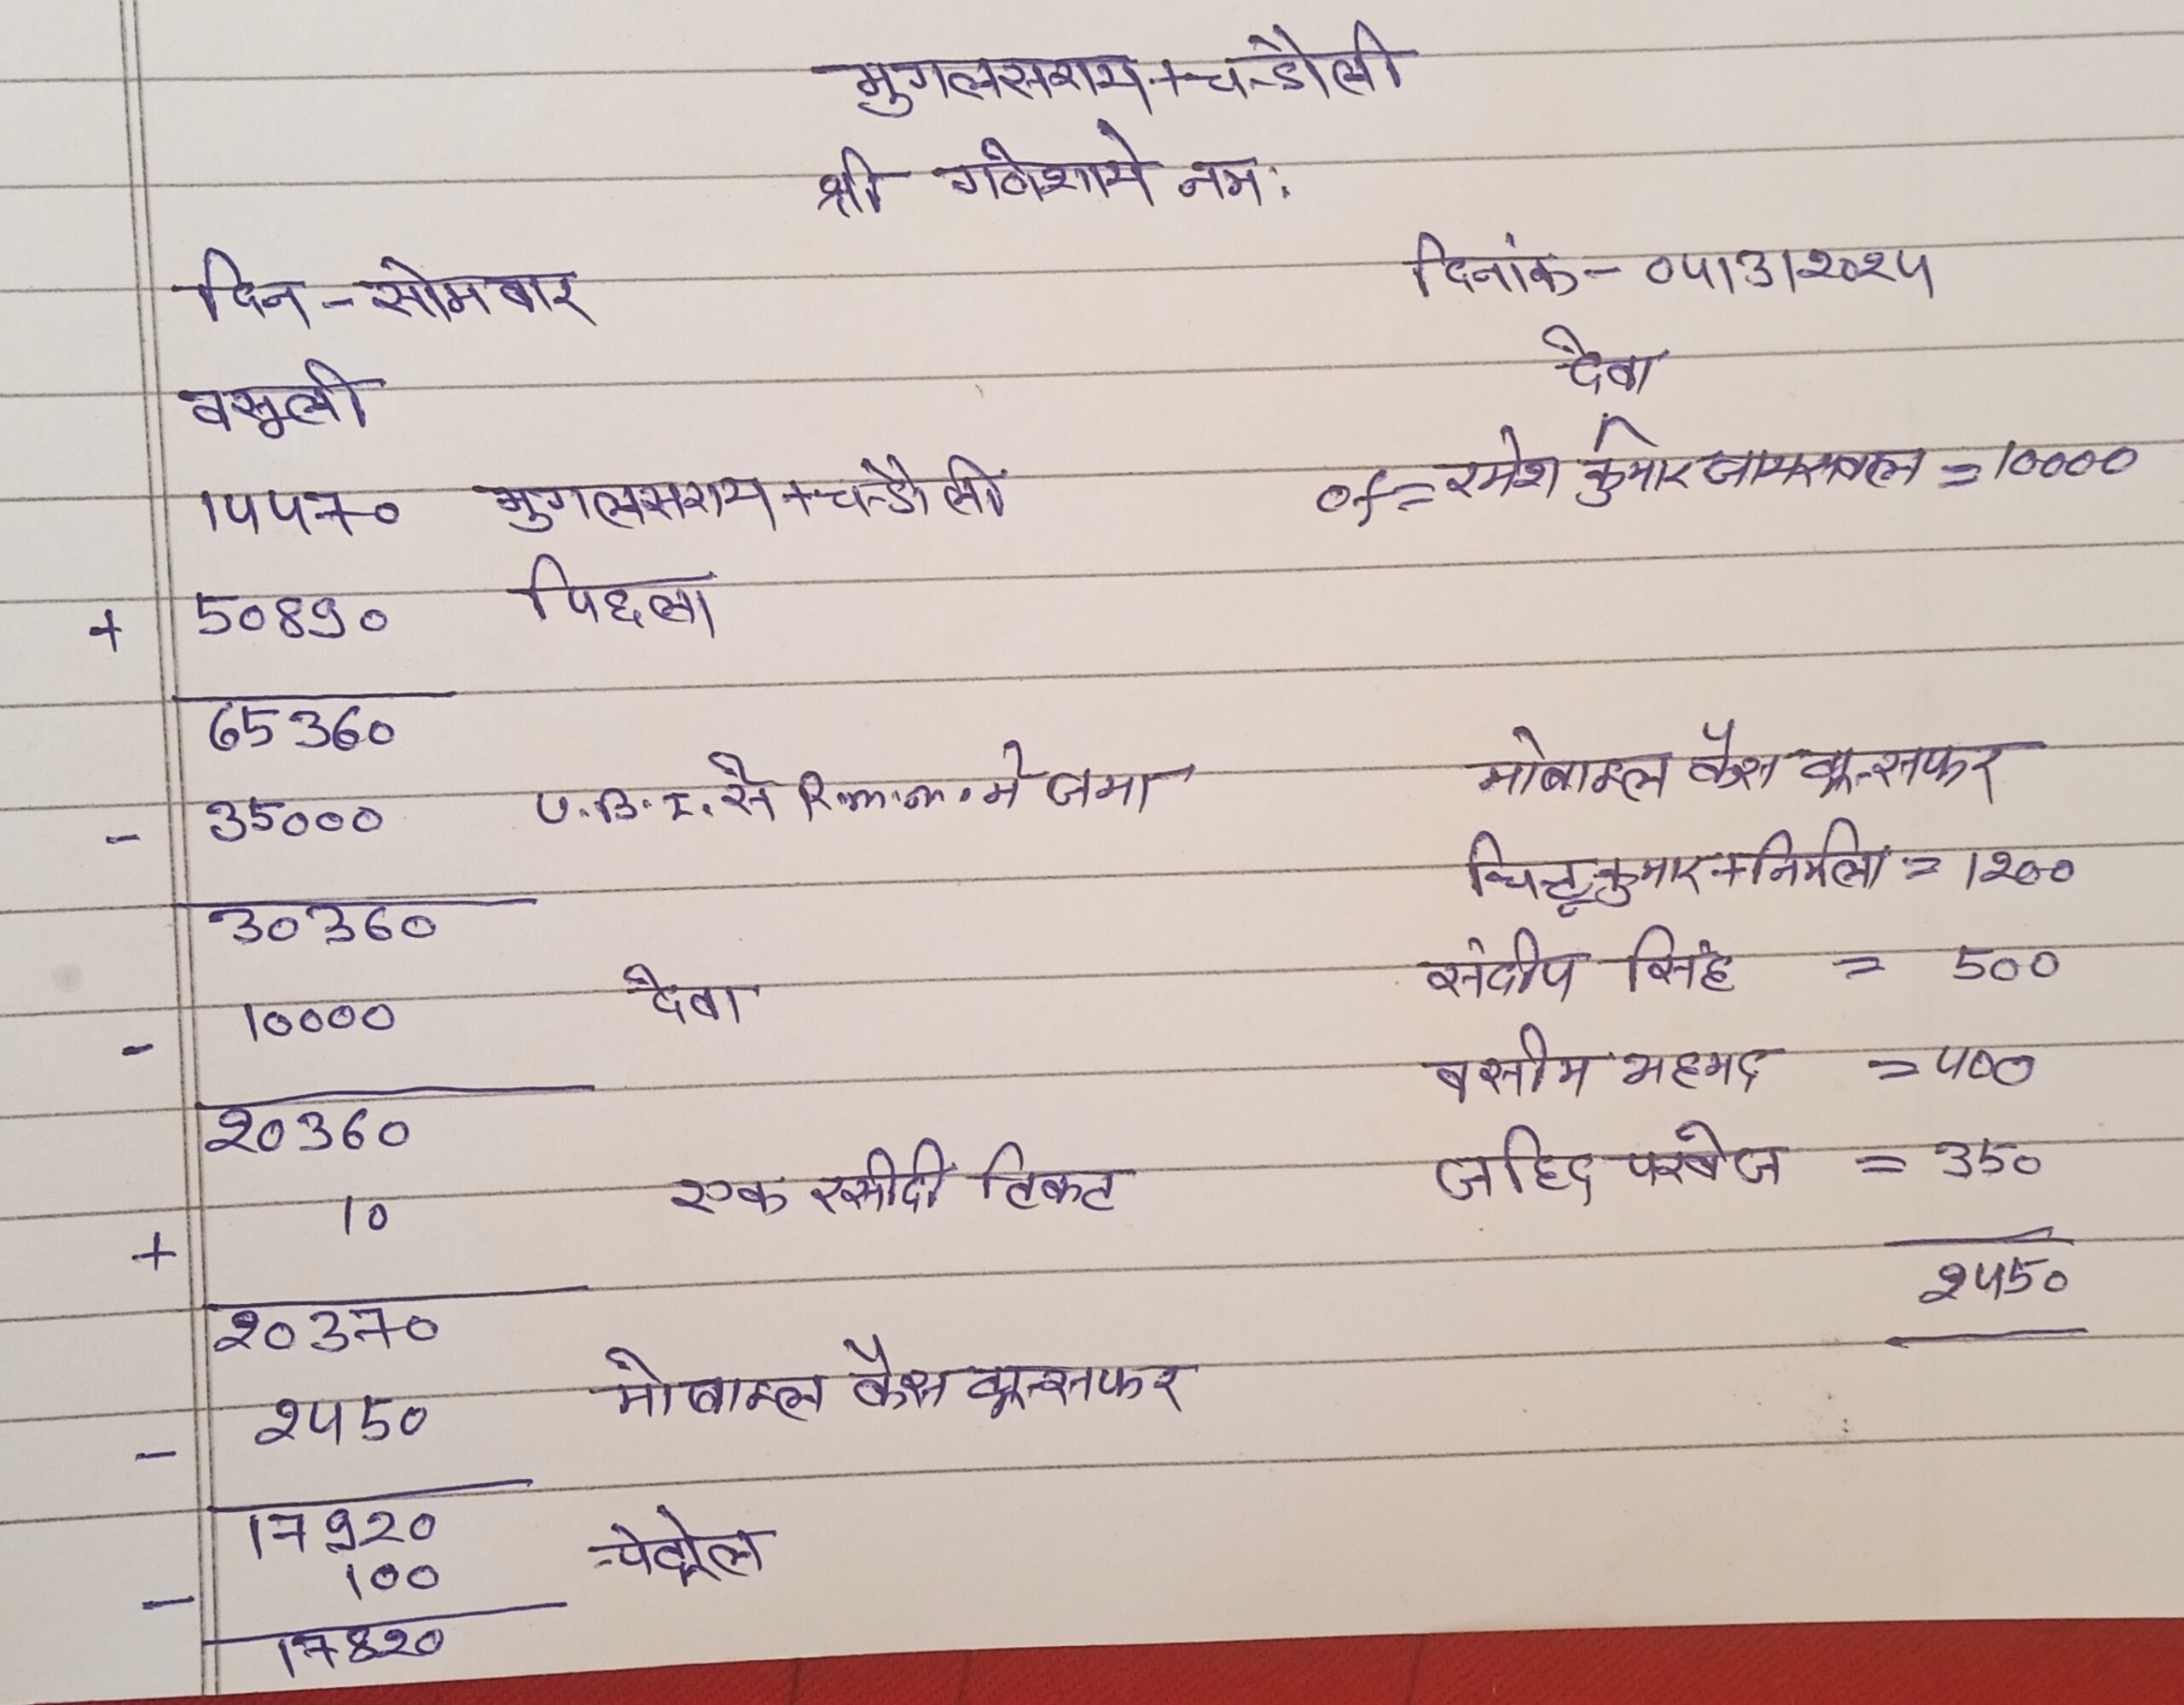 मुगलसराय+चन्डौली
श्री गणेशाये नम:
दिन - सोमबार
दिनांक - 04/3/2024
वसूली
देबा
14470 मुगलसराय+चन्डौली
of = रमेश कुमार जायसवाल = 10000
+ 50890 पिछला
65360
- 35000 U.B.I. से R.m.m. मे जमा
मोबाइल कैस ट्रान्सफर
30360
चिटू कुमार + निर्मला = 1200
- 10000 देबा
संदीप सिंह = 500
20360
बसीम अहमद = 400
+ 10 एक रसीदी टिकट
जहिद परबेज = 350
2450
20370
- 2450 मोबाइल कैस ट्रान्सफर
17920
- 100 - पेट्रोल
17820